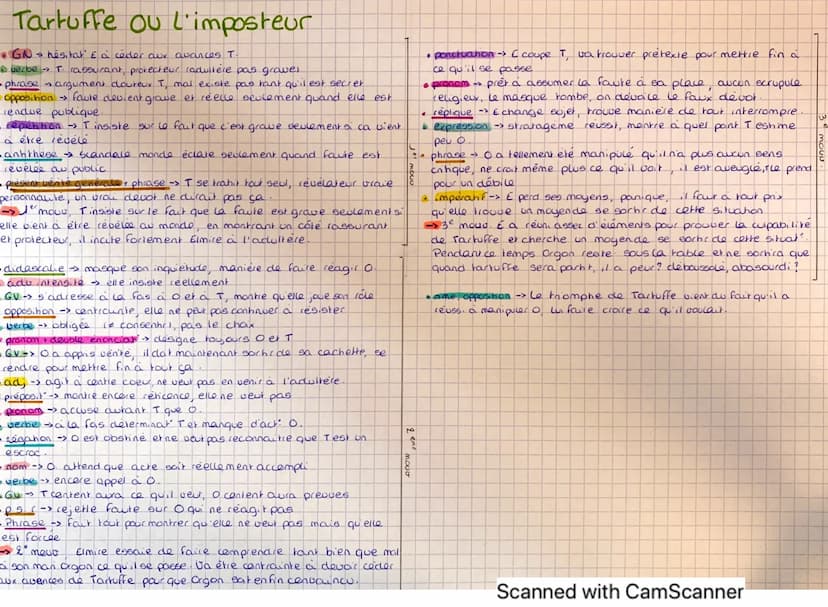 Tartuffe ou l'imposteur
• GN → hésitat° E à céder aux avances T.
• verbe → T rassurant, protecteur (adultère pas grave)
• phrase → argument douteux T, mal existe pas tant qu'il est secret
• opposition → faute devient grave et réelle seulement quand elle est
rendue publique.
• répétition → T insiste sur le fait que c'est grave seulement si ca vient
à être révélé
• antithèse → scandale monde éclate seulement quand faute est
révélée au public
• présent vérité générale + phrase → T se trahit tout seul, révélateur vraie
personnalité, un vrai dévot ne dirait pas ça.
→ 1er mouv, T insiste sur le fait que la faute est grave seulement si
elle vient à être révélée au monde, en montrant un côté rassurant
et protecteur, il incite fortement Elmire à l'adultère.
1er mouv
• didascalie → masque son inquiétude, manière de faire réagir O.
• adv intensité → elle insiste réellement
• GV → s'adresse à la fois à O et à T, montre qu'elle joue son rôle
• opposition → contrainte, elle ne peut pas continuer à résister
• verbe → obligée de consentir, pas le choix
• pronom + double énonciat° → désigne toujours O et T
• GV → O a appris vérité, il doit maintenant sortir de sa cachette, se
rendre pour mettre fin à tout ça.
• adj → agit à contre coeur, ne veut pas en venir à l'adultère.
• préposit° → montre encore réticence, elle ne veut pas
• pronom → accuse autant T que O.
• verbe → à la fois déterminat° T et manque d'act° O.
• négation → O est obstiné et ne veut pas reconnaître que T est un
escroc.
• nom → O attend que acte soit réellement accompli
• verbe → encore appel à O.
• GV → T content aura ce qu'il veut, O content aura preuves
• p.s.c → rejette faute sur O qui ne réagit pas
• Phrase → fait tout pour montrer qu'elle ne veut pas mais qu'elle
est forcée
→ 2e mouv, Elmire essaie de faire comprendre tant bien que mal
à son mari Orgon ce qu'il se passe. Va être contrainte à devoir céder
aux avances de Tartuffe pour que Orgon soit enfin convaincu.
2ème mouv
• ponctuation → E coupe T, va trouver prétexte pour mettre fin à
ce qu'il se passe
• pronom → prêt à assumer la faute à sa place, aucun scrupule
religieux, le masque tombe, on dévoile le faux dévot
• réplique → E change sujet, trouve manière de tout interrompre.
• expression → stratagème réussit, montre à quel point T estime
peu O.
• phrase → O a tellement été manipulé qu'il n'a plus aucun sens
critique, ne croit même plus ce qu'il voit, il est aveuglé, T le prend
pour un débile
• impératif → E perd ses moyens, panique, il faut à tout prix
qu'elle trouve un moyen de se sortir de cette situation
→ 3e mouv E a réuni assez d'éléments pour prouver la culpabilité
de Tartuffe et cherche un moyen de se sortir de cette situat°
Pendant ce temps Orgon reste sous la table et ne sortira que
quand tartuffe sera parti, il a peur? déboussolé, abasourdi?
3e mouv
opposition → Le triomphe de Tartuffe vient du fait qu'il a
réussi à manipuler O, lui faire croire ce qu'il voulait.
Scanned with CamScanner